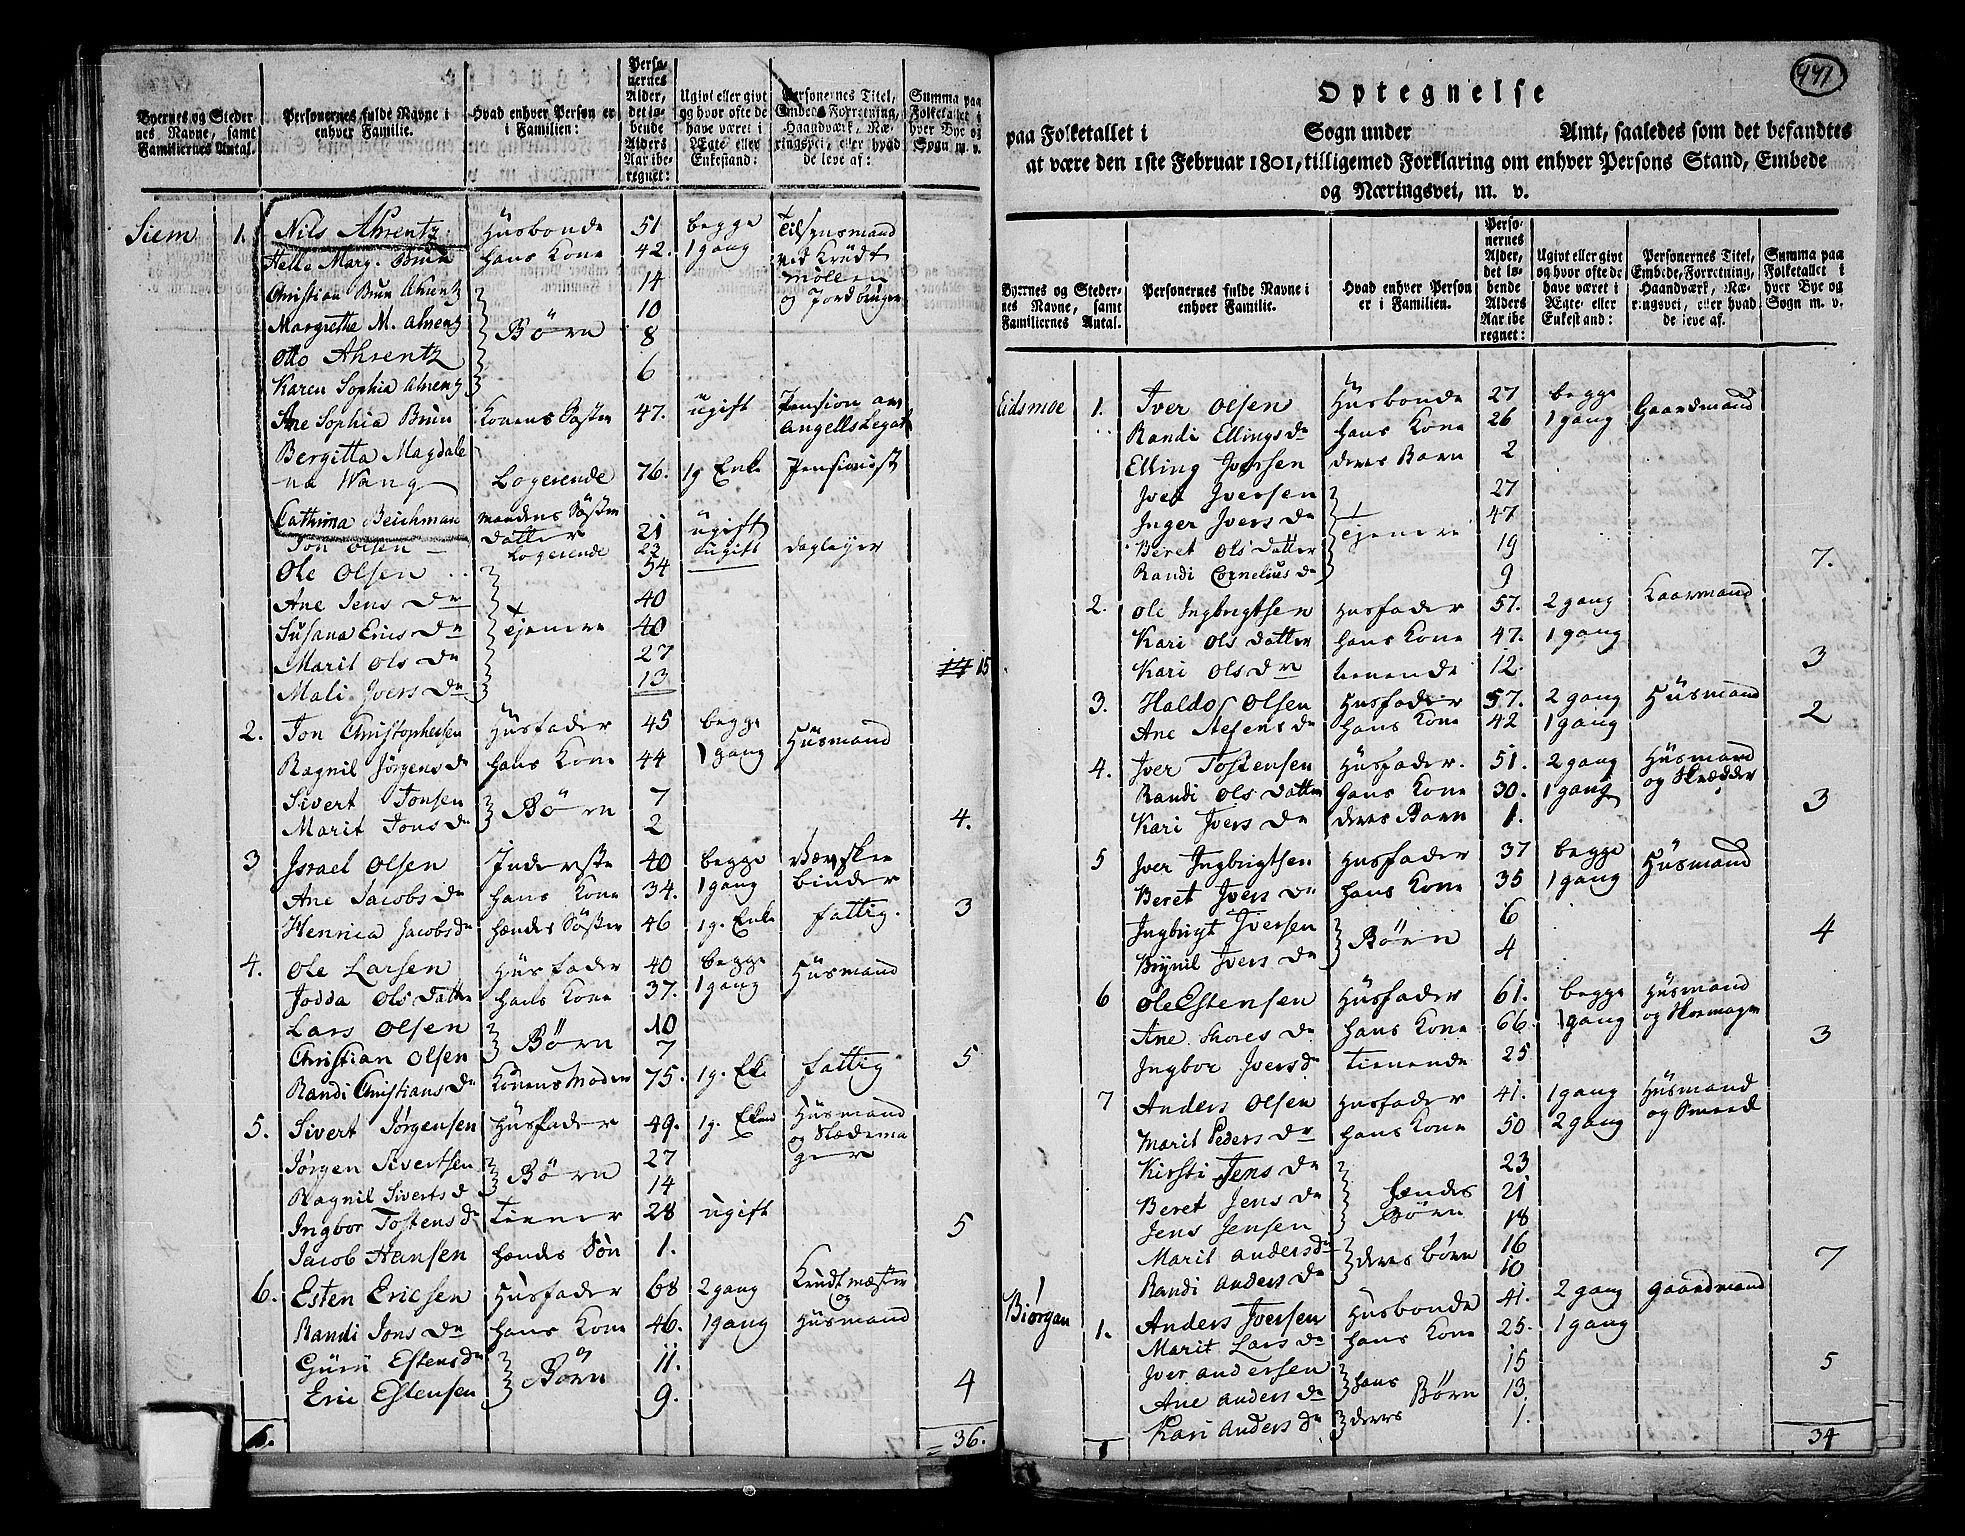 Byernes og Steder-
nes Navne, samt
Familiernes Antal.
Personernes fulde Navne i
enhver Familie.
Hvad enhver Person er
i Familien:
Perso-
nernes
Alder,
det lø-
bende
Alders
Aar ibe-
regnet:
Ugivt eller givt
og hvor ofte de
have været i
Ægte- eller
Enkestand:
Personernes Titel,
Embede, Forretning,
Haandværk, Næ-
ringsvei, eller hvad
de leve af:
Summa paa
Folketallet i
hver Bye og
Sogn m. v.
Siem 1. Nils Ahrentz Husbonde 51 begge Tilsynsmand
Helle Marg. Brun hans Kone 42. 1 gang ved Krudt
Christian Brun Ahrentz 14 Møllen
og Jordbruger
Margrethe M. Ahrentz Børn 10
Otto Ahrentz 8
Karen Sophia Ahrentz 6
Ane Sophia Brun Konens Søster 47. ugift Pension av
Angells Legat
Bergitta Magdale
na Wang Logerende 76. 1g Enke Pensionist
Cathrina Beichman mandens Søster
datter 21 ugift
Jon Olsen Logerende 22 ugift dagleyer
Ole Olsen 54
Ane Jens Dr 40
Susana Erics Dr Tjenere 40
Marit Ols Dr 27
Mali Ivers Dr 13 15
2. Jon Christophersen Husfader 45 begge Husmand
Ragnil Jørgens d hans Kone 44 1 gang
Sivert Jonsen Børn 7
Marit Jons Dr 2 4.
3 Israel Olsen Inderste 40 begge Væv skee
Ane Jacobs Dr hans Kone 34. 1 gang binder
Henrica Jacobsdr hendes Søster 46 1g. Enke fattig. 3
4. Ole Larsen Husfader 40 begge Husmand
Jodda Ols Datter hans Kone 37. 1 gang
Lars Olsen Børn 10
Christian Olsen 7
Randi Christians Dr Konens Moder 75. 1g. Eke fattig 5
5. Sivert Jørgensen Husfader 49. 1g. Ekmd Husmand
og Slædema
ger
Jørgen Sivertsen Børn 27
Ragnil Siverts d 14
Ingbor Tostens dr tiener 28 ugift
Jacob Hansen hendes Søn 1. 5
6. Esten Ericsen Husfader 68 2 gang Krudtmester
og
Randi Jons Dr hans Kone 46. 1 gang Husmand
Guru Estens Dr Børn 11.
Eric Estensen 9. 4
6. = 36.
441
Optegnelse
paa Folketallet i Sogn under Amt, saaledes som det befandtes
at være den 1ste Februar 1801, tilligemed Forklaring om enhver Persons Stand, Embede
og Næringsvei, m. v.
Byernes og Steder-
nes Navne, samt
Familiernes Antal.
Personernes fulde Navne i
enhver Familie.
Hvad enhver Person
er i Familien.
Perso-
nernes
Alder,
det lø-
bende
Alders
Aar ibe-
regnet:
Ugivt eller givt
og hvor ofte de
have været i
Ægte- eller
Enkestand:
Personernes Titel,
Embede, Forretning,
Haandværk, Næ-
ringsvei, eller hvad
de leve af.
Summa paa
Folketallet i
hver Bye og
Sogn m. v.
Eidsmoe 1. Iver Olsen Husbonde 27 begge Gaardmand
Randi Ellings Dr hans Kone 26 1 gang
Elling Iversen deres Barn 2
Iver Iversen 27
Inger Ivers Dr Tjenere 47
Beret Ols datter 19
Randi Cornelius Dr 9 7.
2. Ole Ingbrigtsen Husfader 57. 2 gang Kaarmand
Kari Ols datter hans Kone 47. 1 gang
Kari Ols Dr tienende 12. 3
3. Haldor Olsen Husfader 57. 2 gang Husmand
Ane Stefens Dr hans Kone 42 1 gang 2
4. Iver Tostensen Husfader. 51. 2 gang Husmand
og Skrædder
Randi Ols datter hans Kone 30. 1 gang
Kari Ivers Dr deres Barn 1. 3
5 Iver Ingbrigtsen Husfader 37 begge Husmand
Beret Ivers Dr hans Kone 35 1 gang
Ingbrigt Iversen Børn 6
Brynil Ivers Dr 4 4
6 Ole Estensen Husfader 61. begge Husmand
og Skomager
Ane Thores Dr hans Kone 66. 1 gang
Ingbor Iversdr tienende 25 3
7 Anders Olsen Husfader 41. 1 gang Husmand
og Smed
Marit Peders Dr hans Kone 50 2 gang
Kirsti Jens Dr 23
Beret Jens Dr hendes
Børn 21
Jens Jensen 18
Marit Anders Dr deres børn 16
Randi Anders Dr 10 7
Biørgan 1. Anders Iversen Husbonde 41. 2 gang gaardmand
Marit Lars Dr hans Kone 25. 1 gang
Iver Andersen hans 15
Ane Anders Dr Børn 13.
Kari Anders Dr deres 1. 5
8 34